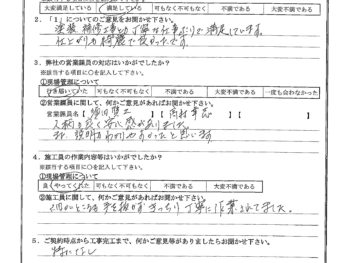 大変満足している 満足している 可もなく不可もなく 不満である 大変不満である
2．「1」についてのご意見をお聞かせ下さい。
塗装、補修工事とも丁寧な仕事ぶりで満足しています。
仕上がりも綺麗で良かったです。
3．弊社の営業職員の対応はいかがでしたか？
※該当する項目に○を記入して下さい。
①現場管理について
行き届いていた 可もなく不可もなく 不満である 大変不満である 一度も会わなかった
②営業職員に関して、何かご意見があればお聞かせ下さい。
営業職員名【 】【 】【 】
人柄も良く安心感がありました。
又、説明もわかりやすかったと思います。
4．施工員の作業内容等はいかがでしたか？
※該当する項目に○を記入して下さい。
①現場管理について
良くやってくれた 可もなく不可もなく 不満である 大変不満である
②施工員に関して、何かご意見があればお聞かせ下さい。
細かいところも手を抜かず、きっちり丁寧に作業されてました。
5．ご契約時点から工事完工まで、何かご意見等がありましたらお聞かせ下さい。
特になし